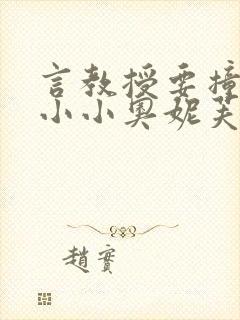 言教授要撞
小小奥妮芙
趙實